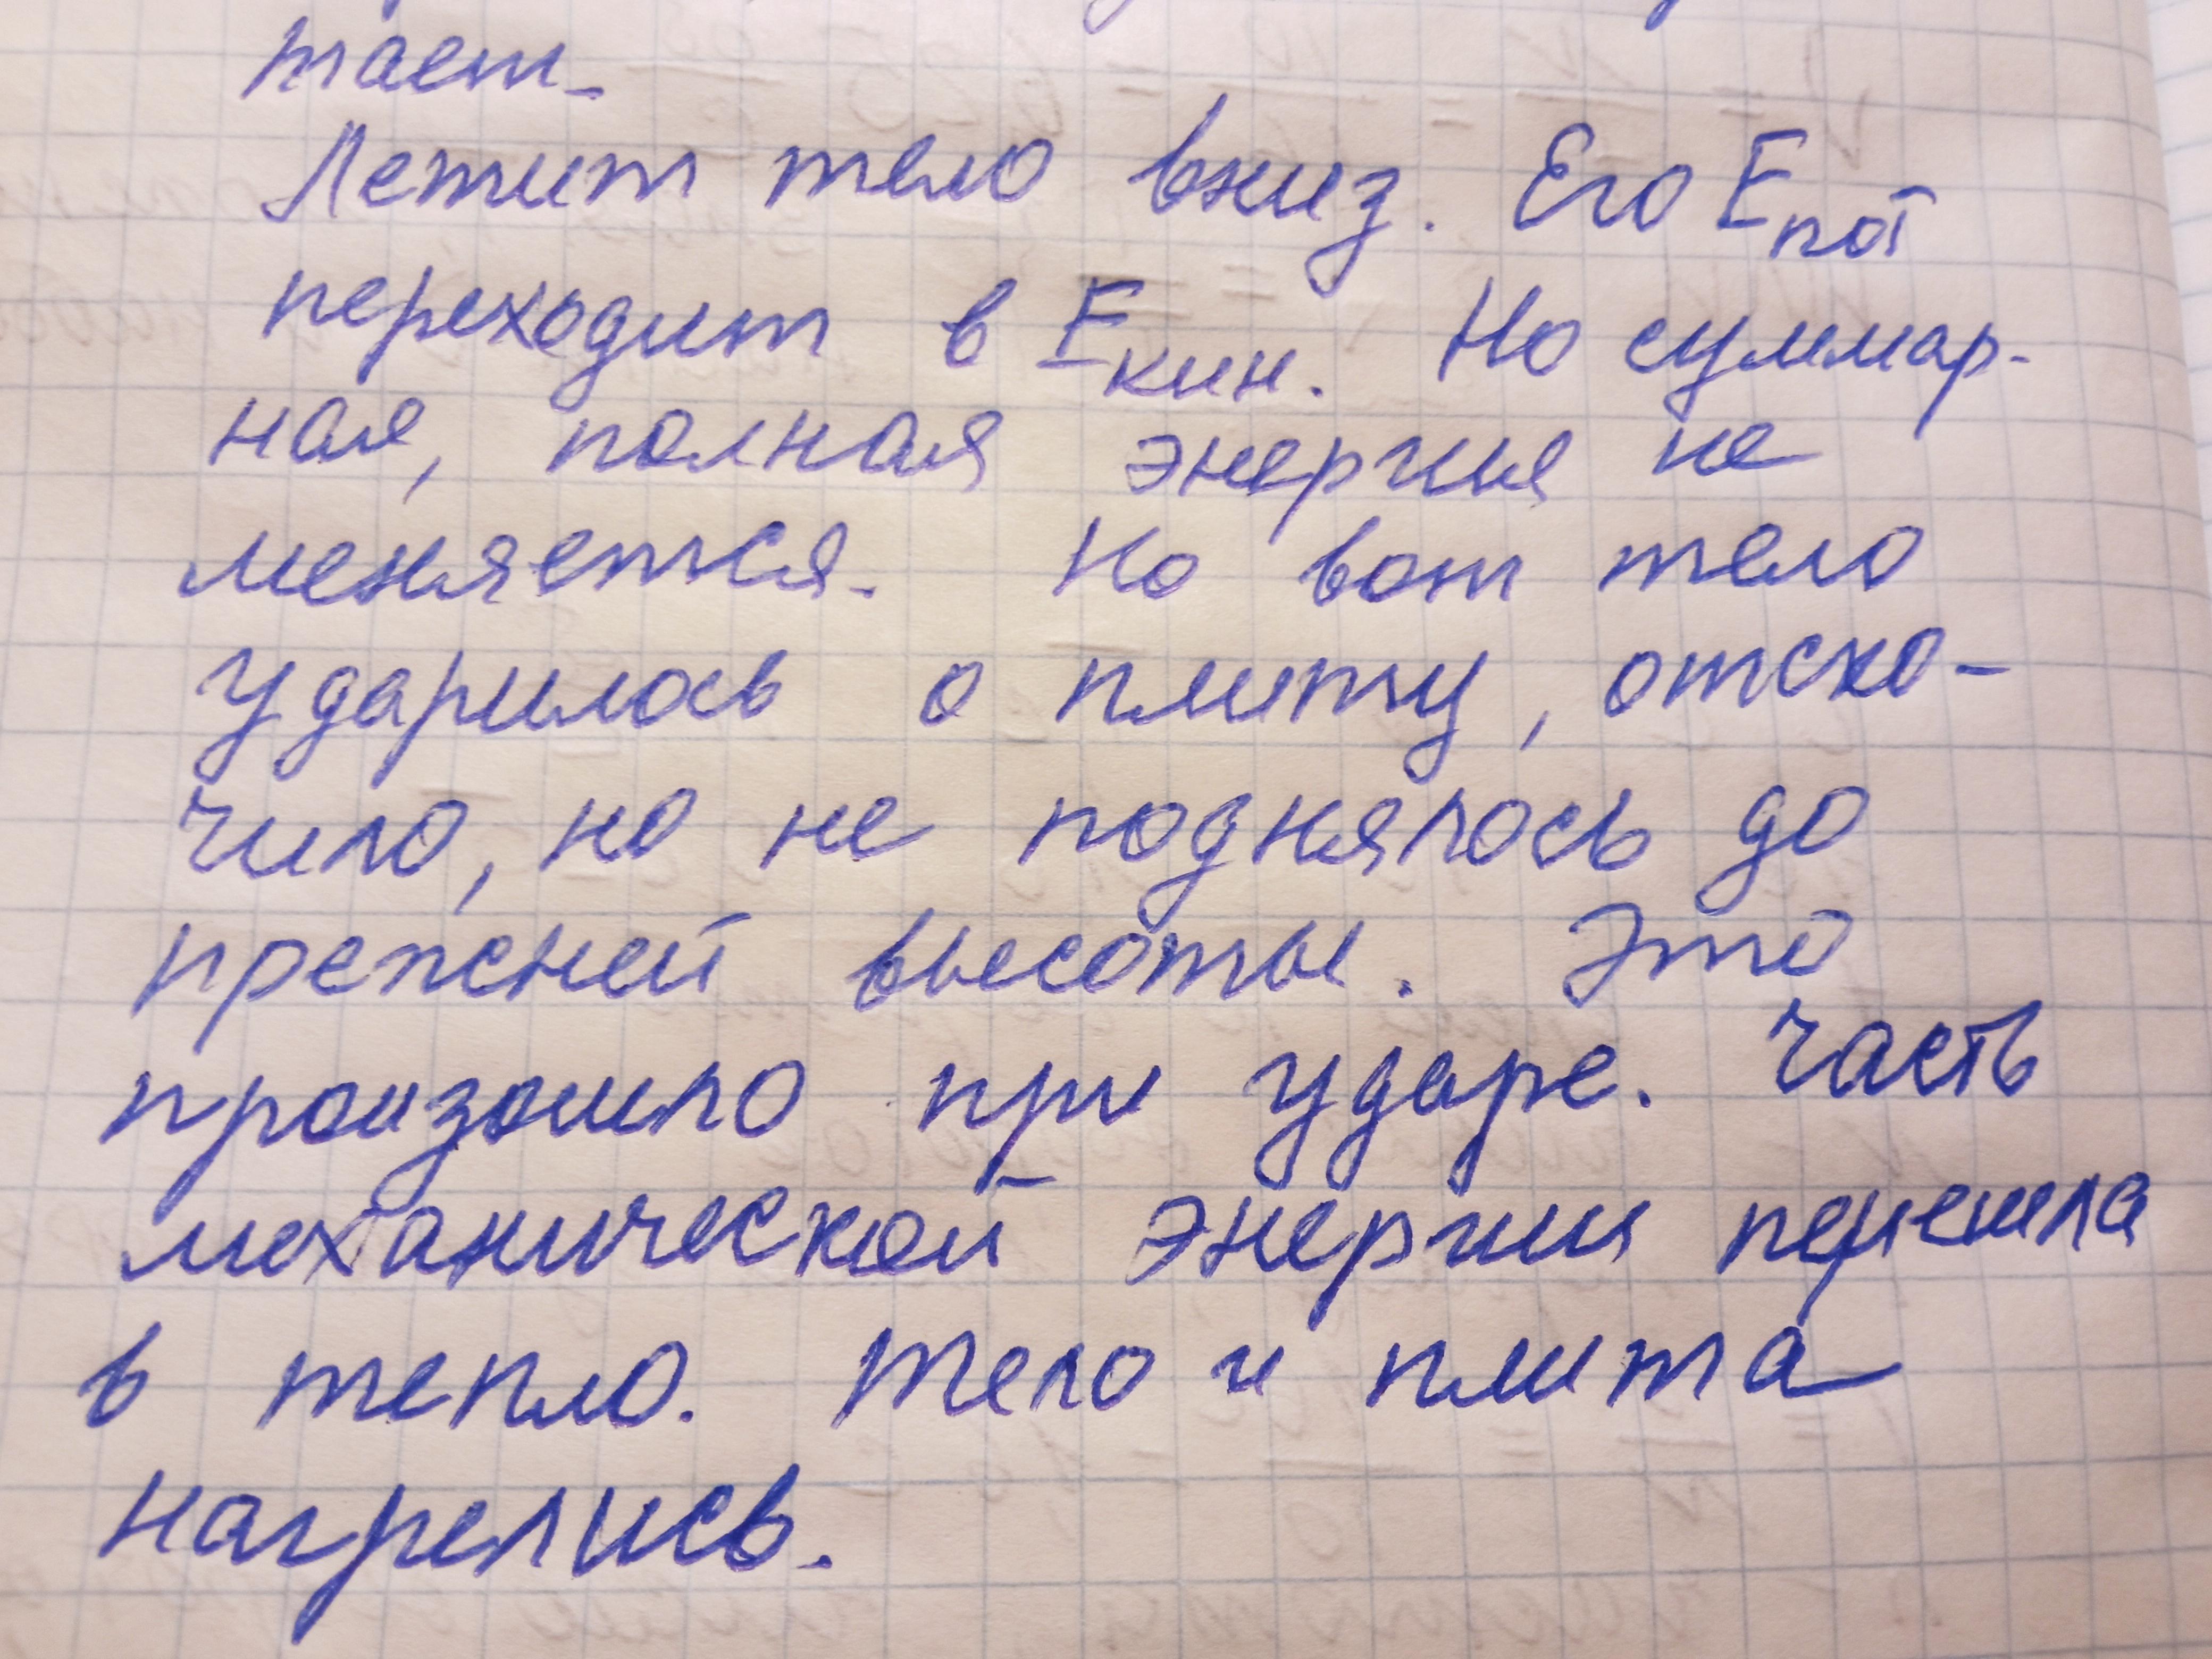 тает.
Летит тело вниз. Его Eпот
переходит в Eкин. Но суммар-
ная, полная энергия не
меняется. Но вот тело
ударилось о плиту, отско-
чило, но не поднялось до
прежней высоты. Это
произошло при ударе. Часть
механической энергии перешла
в тепло. Тело и плита
нагрелись.